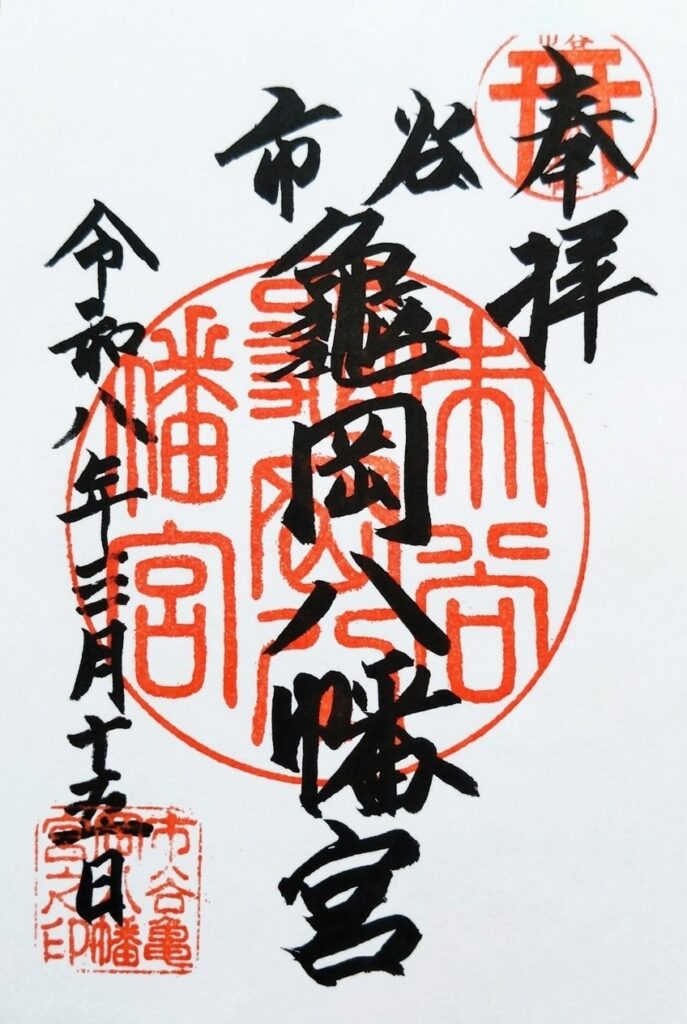 奉拝
市谷
亀岡八幡宮
令和八年三月十五日
市谷
亀岡八
幡宮
市谷亀
岡八幡
宮之印